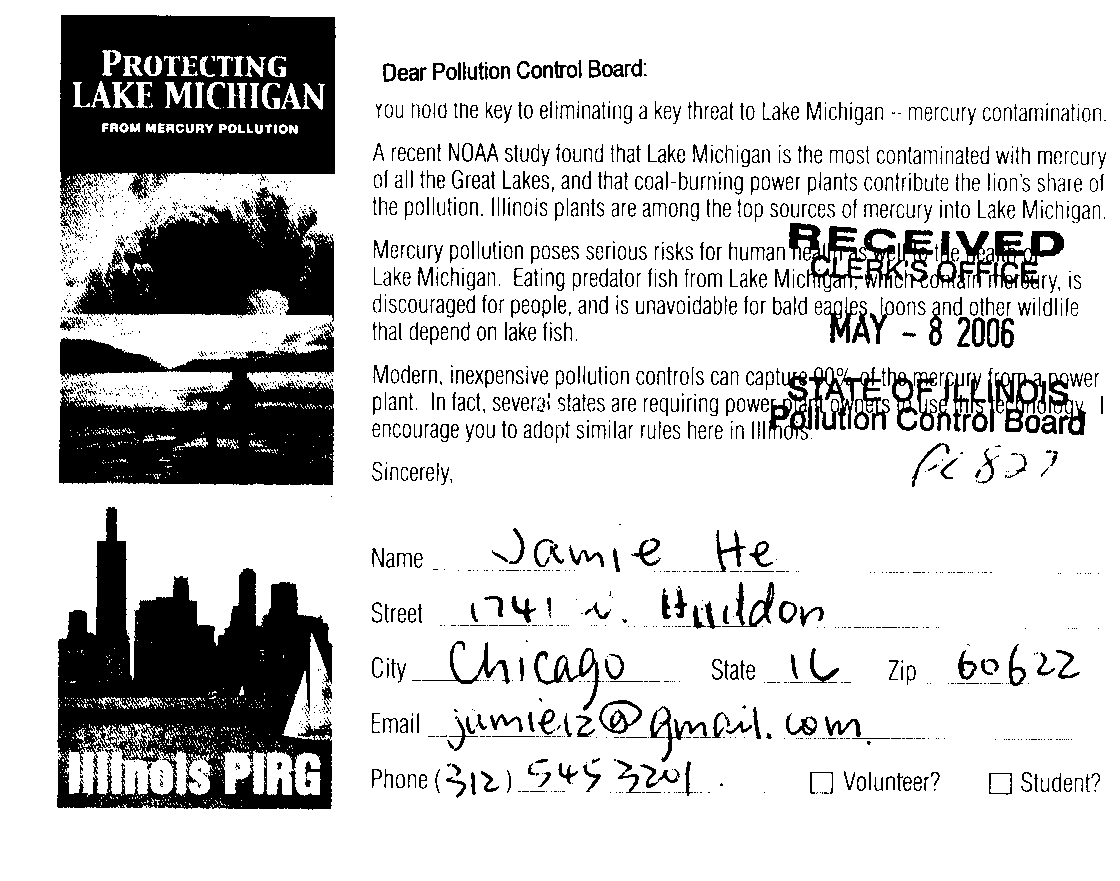 PROTECTING
LAKE MICHIGAN
FROM MERCURY POLLUTION
Illinois PIRG
Dear Pollution Control Board:
You hold the key to eliminating a key threat to Lake Michigan -- mercury contamination.
A recent NOAA study found that Lake Michigan is the most contaminated with mercury
of all the Great Lakes, and that coal-burning power plants contribute the lion's share of
the pollution. Illinois plants are among the top sources of mercury into Lake Michigan.
Mercury pollution poses serious risks for human health as well to the health of
Lake Michigan. Eating predator fish from Lake Michigan, which contain mercury, is
discouraged for people, and is unavoidable for bald eagles, loons and other wildlife
that depend on lake fish.
Modern, inexpensive pollution controls can capture 90% of the mercury from a power
plant. In fact, several states are requiring power plant owners to use this technology. I
encourage you to adopt similar rules here in Illinois.
RECEIVED
CLERK'S OFFICE
MAY - 8 2006
STATE OF ILLINOIS
Pollution Control Board
PC 827
Sincerely,
Name Jamie He
Street 1741 N.
City Chicago State IL Zip 60622
Email @gmail.com
Phone (312) 545 3201
Volunteer? Student?